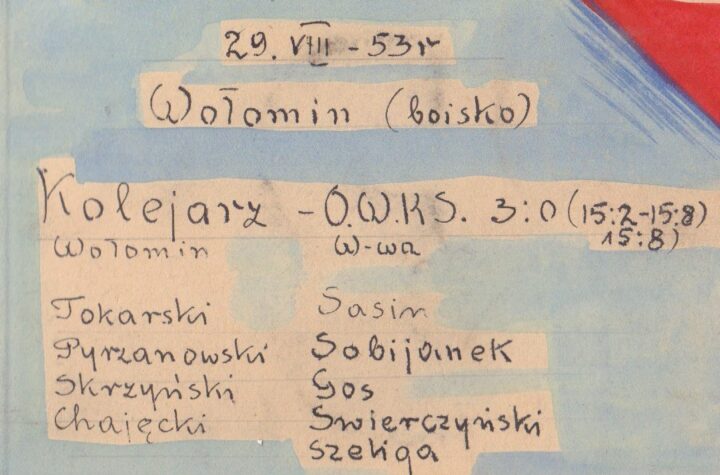 29. VIII - 53r
Wołomin (boisko)
Kolejarz - O.W.K.S. 3:0 (15:2-15:8)
15:8)
Wołomin W-wa
Tokarski Sasin
Pyrzanowski Sobijanek
Skrzyński Gos
Chajęcki Świerczyński
Szeliga